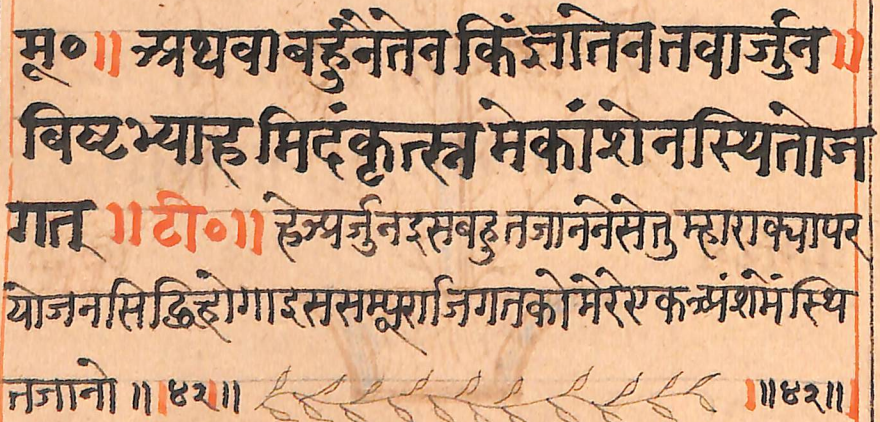 मू०॥ अथवा बहुनैतेन किं ज्ञातेन तवार्जुन॥
विष्टभ्याहमिदं कृत्स्नमेकांशेन स्थितो ज
गत् ॥टी०॥ हे अर्जुन इस बहुत जाननेसे तुम्हारा क्या पर
योजन सिद्धि होगा इस सम्पूर्ण जगतको मेरे एक अंशमें स्थि
त जानो ॥॥४२॥॥ ॥॥४२॥॥